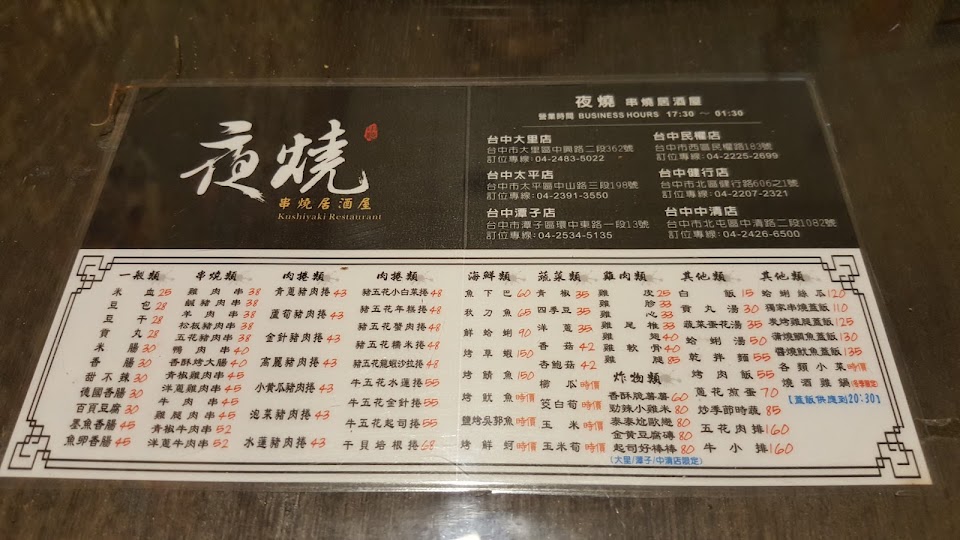 夜燒
串燒居酒屋
Kushiyaki Restaurant
夜燒 串燒居酒屋
營業時間 BUSINESS HOURS 17:30 ~ 01:30
台中大里店
台中市大里區中興路二段362號
訂位專線:04-2483-5022
台中太平店
台中市太平區中山路三段198號
訂位專線:04-2391-3550
台中潭子店
台中市潭子區環中東路一段13號
訂位專線:04-2534-5135
台中民權店
台中市西區民權路183號
訂位專線:04-2225-2699
台中健行店
台中市北區健行路606之1號
訂位專線:04-2207-2321
台中中清店
台中市北屯區中清路二段1082號
訂位專線:04-2426-6500
一般類
米血 25
豆包 28
豆干 28
貢丸 28
米腸 30
香腸 30
甜不辣 30
德國香腸 30
百頁豆腐 30
墨魚香腸 45
魚卵香腸 45
串燒類
雞肉串 38
鹹豬肉串 38
羊肉串 38
松板豬肉串 38
五花豬肉串 38
鴨肉串 40
香酥烤大腸 40
青椒雞肉串 45
洋蔥雞肉串 45
牛肉串 45
雞腿肉串 45
青椒牛肉串 52
洋蔥牛肉串 52
肉捲類
青蔥豬肉捲 43
蘆筍豬肉捲 43
金針豬肉捲 43
高麗豬肉捲 43
小黃瓜豬肉捲 43
泡菜豬肉捲 43
水蓮豬肉捲 43
肉捲類
豬五花小白菜捲 48
豬五花年糕捲 48
豬五花蟹肉捲 48
豬五花糯米捲 48
豬五花龍蝦沙拉捲 48
牛五花水蓮捲 55
牛五花金針捲 55
牛五花起司捲 55
干貝培根捲 68
海鮮類
魚下巴 60
秋刀魚 65
鮮蛤蜊 90
烤草蝦 150
烤鯖魚 150
烤魷魚 時價
鹽烤吳郭魚 時價
烤鮮蚵 時價
蔬菜類
青椒 35
四季豆 35
洋蔥 35
香菇 42
杏鮑菇 42
櫛瓜 時價
筊白筍 時價
玉米 時價
玉米筍 時價
雞肉類
雞皮 25
雞胗 33
雞心 33
雞尾椎 33
雞翅 40
雞軟骨 40
雞腿 85
炸物類
香酥脆薯薯 60
勁辣小雞米 80
泰泰尬歐戀 80
金黃豆腐磚 80
起司好棒棒 80
(大里/潭子/中清店限定)
其他類
白飯 15
貢丸湯 30
蔬菜蛋花湯 35
蛤蜊湯 50
乾拌麵 55
烤肉飯 55
蔥花煎蛋 70
炒季節時蔬 85
五花肉排 160
牛小排 160
其他類
蛤蜊絲瓜 120
獨家串燒蓋飯 110
炭烤雞腿蓋飯 125
蒲燒鯛魚蓋飯 130
醬燒魷魚蓋飯 135
各類小菜 時價
燒酒雞鍋
【蓋飯供應到20:30】